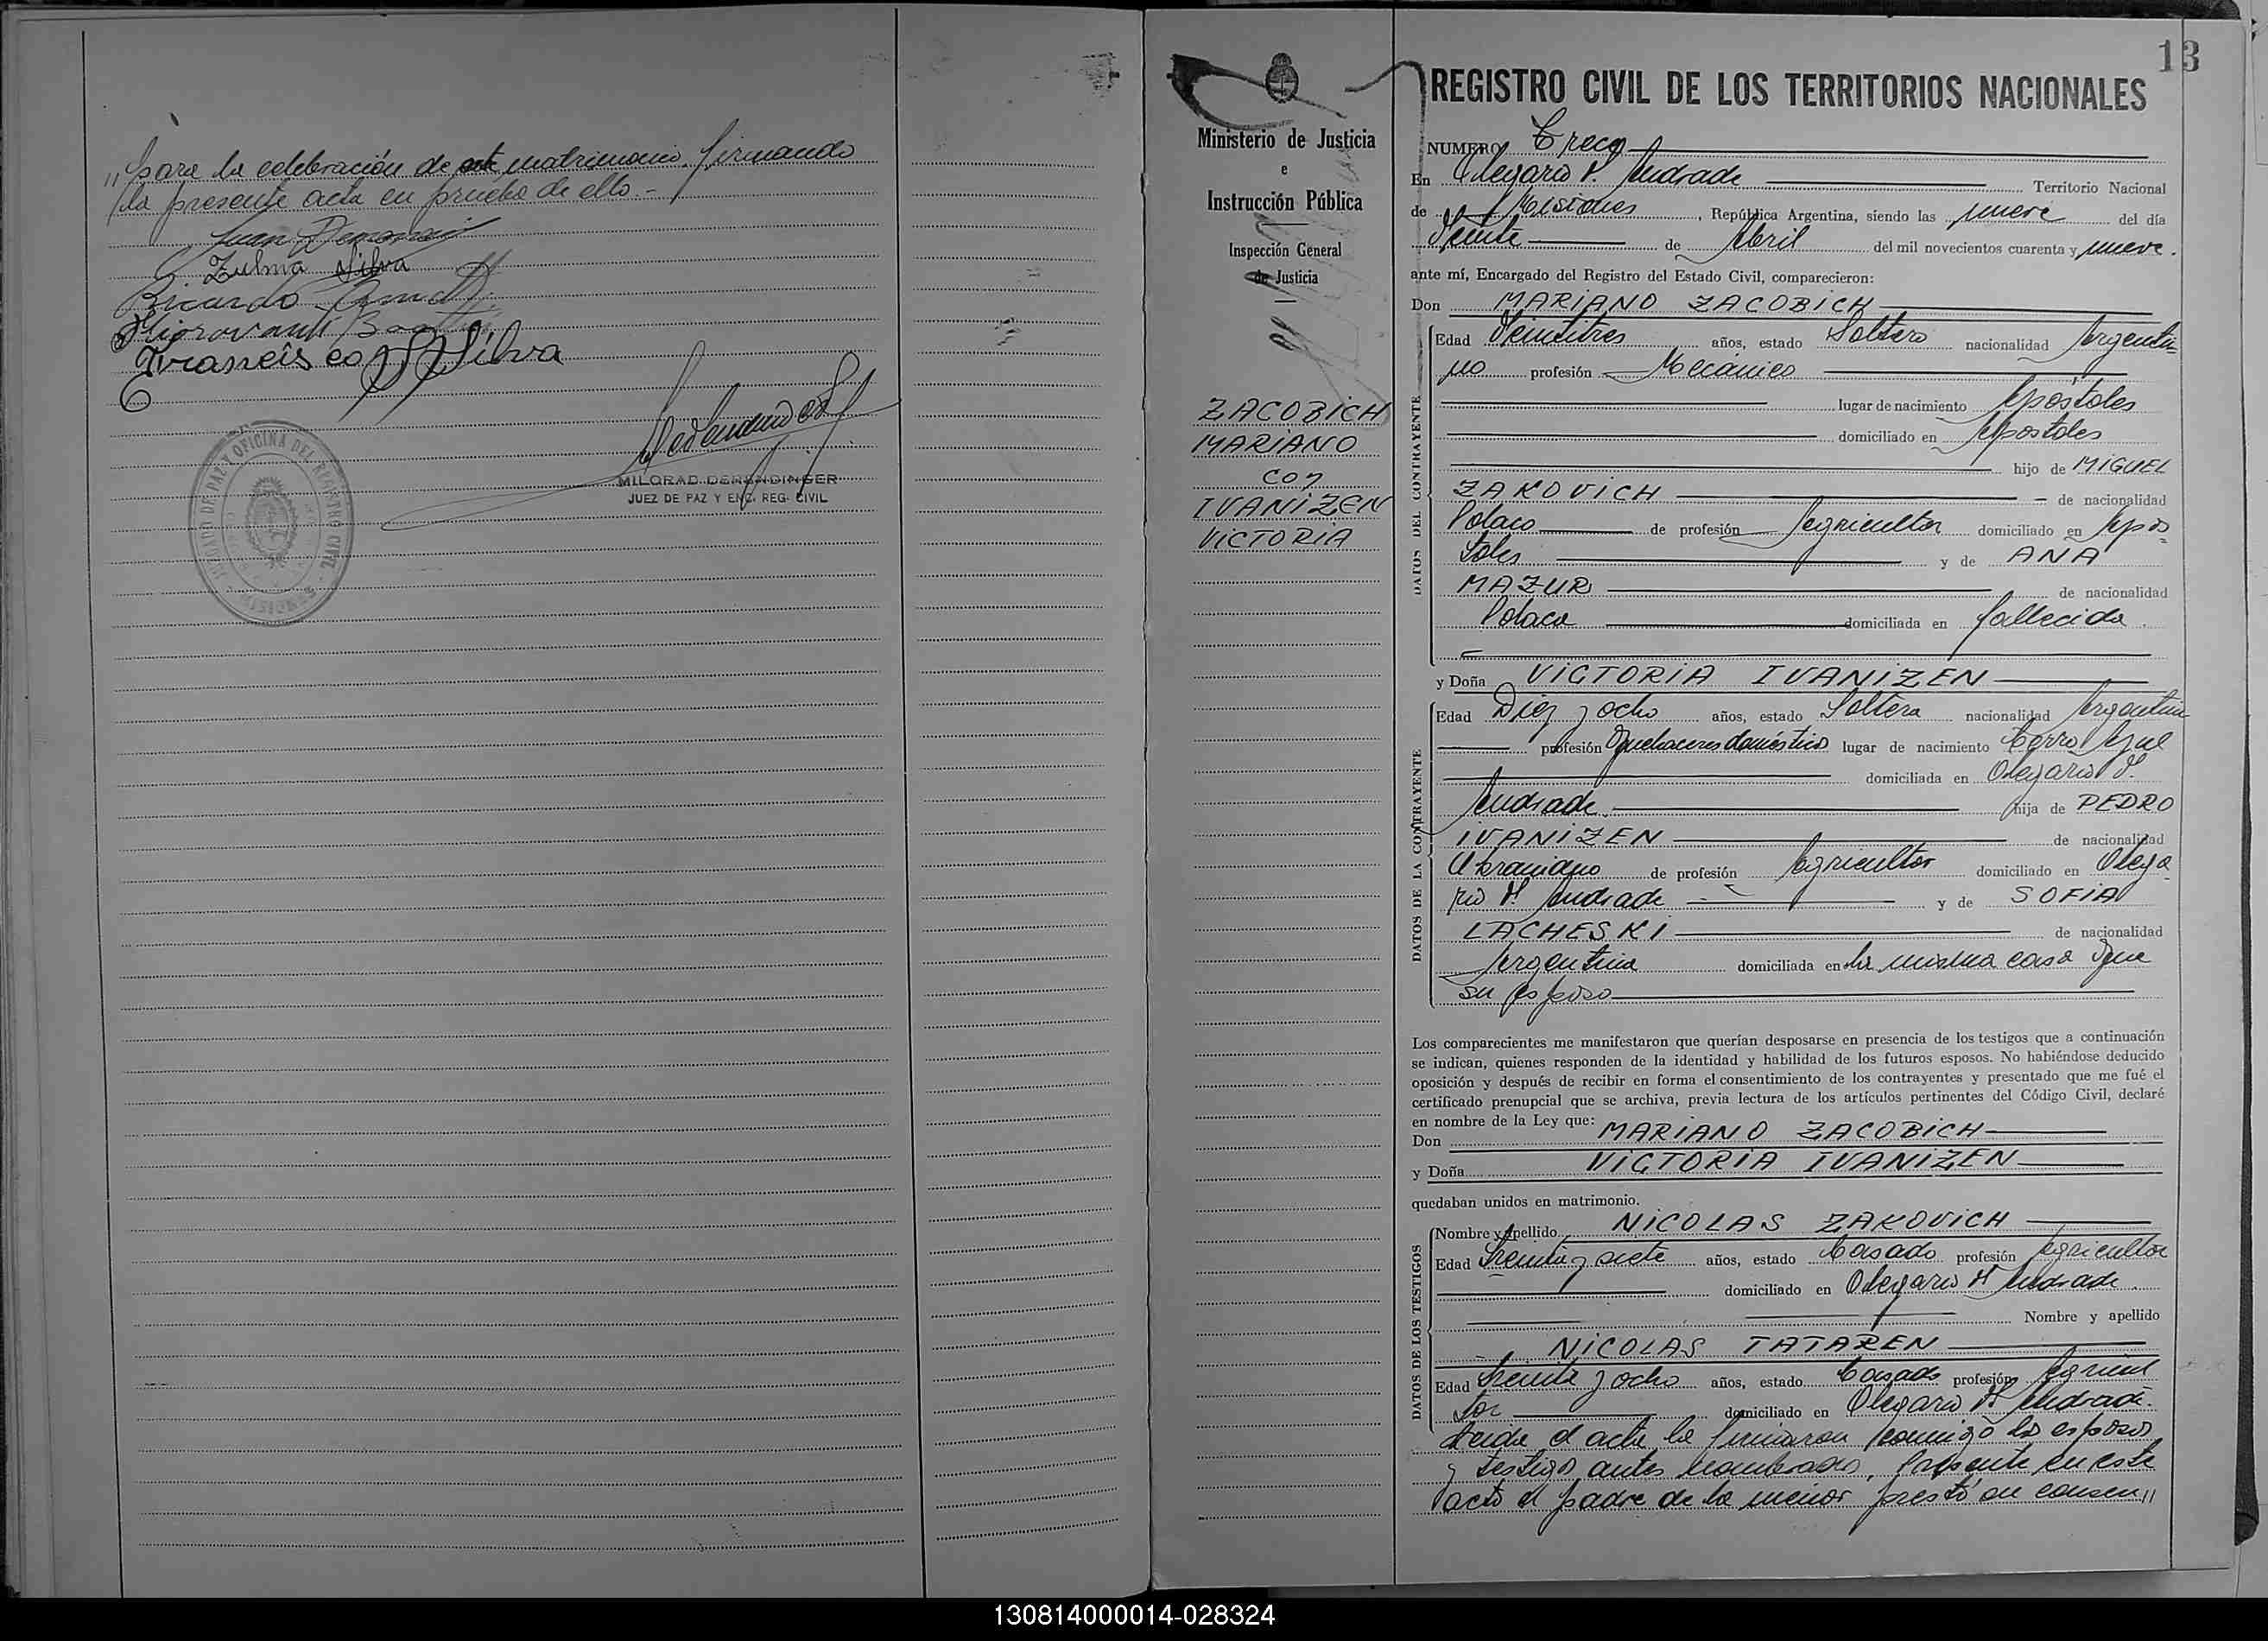 „para la celebración de este matrimonio, firmando
la presente acta en prueba de ello.-
Juan
Zulma Silva
Ricardo
Francisco Silva
JUZGADO DE PAZ Y OFICINA DEL REGISTRO CIVIL
MILORAD DERENDINGER
JUEZ DE PAZ Y ENC. REG. CIVIL
13
Ministerio de Justicia
e
Instrucción Pública
Inspección General
de Justicia
ZACOBICH
MARIANO
con
IVANIZEN
VICTORIA
REGISTRO CIVIL DE LOS TERRITORIOS NACIONALES
NUMERO Trece
En Olegario V. Andrade Territorio Nacional
de Misiones, República Argentina, siendo las nueve del día
Veinte de Abril del mil novecientos cuarenta y nueve.
ante mí, Encargado del Registro del Estado Civil, comparecieron:
Don MARIANO ZACOBICH
DATOS DEL CONTRAYENTE
Edad Veintitres años, estado Soltero nacionalidad Argenti-
no profesión Mecánico
lugar de nacimiento Apóstoles
domiciliado en Apostoles
hijo de MIGUEL
ZAKOVICH de nacionalidad
Polaco de profesión Agricultor domiciliado en Apos-
toles y de ANA
MAZUR de nacionalidad
Polaca domiciliada en fallecida.
y Doña VICTORIA IVANIZEN
DATOS DE LA CONTRAYENTE
Edad Diez y ocho años, estado Soltera nacionalidad Argentina
profesión Quehaceres domésticos lugar de nacimiento Cerro Azul
domiciliada en Olegario V.
Andrade. hija de PEDRO
IVANIZEN de nacionalidad
Ukraniano de profesión Agricultor domiciliado en Olega-
rio V. Andrade y de SOFIA
LACHESKI de nacionalidad
Argentina domiciliada en la misma casa que
su esposo
Los comparecientes me manifestaron que querían desposarse en presencia de los testigos que a continuación
se indican, quienes responden de la identidad y habilidad de los futuros esposos. No habiéndose deducido
oposición y después de recibir en forma el consentimiento de los contrayentes y presentado que me fué el
certificado prenupcial que se archiva, previa lectura de los artículos pertinentes del Código Civil, declaré
en nombre de la Ley que:
Don MARIANO ZACOBICH
y Doña VICTORIA IVANIZEN
quedaban unidos en matrimonio.
DATOS DE LOS TESTIGOS
Nombre y apellido NICOLAS ZAKOVICH
Edad Treinta y siete años, estado Casado profesión Agricultor
domiciliado en Olegario V. Andrade.
Nombre y apellido
NICOLAS TATAREN
Edad Treinta y ocho años, estado Casado profesión Agricul
tor domiciliado en Olegario V. Andrade.
Leida el acta la firmaron conmigo los esposos
y testigos antes nombrados. Presente en este
acto el padre de la menor prestó su consen„
130814000014-028324